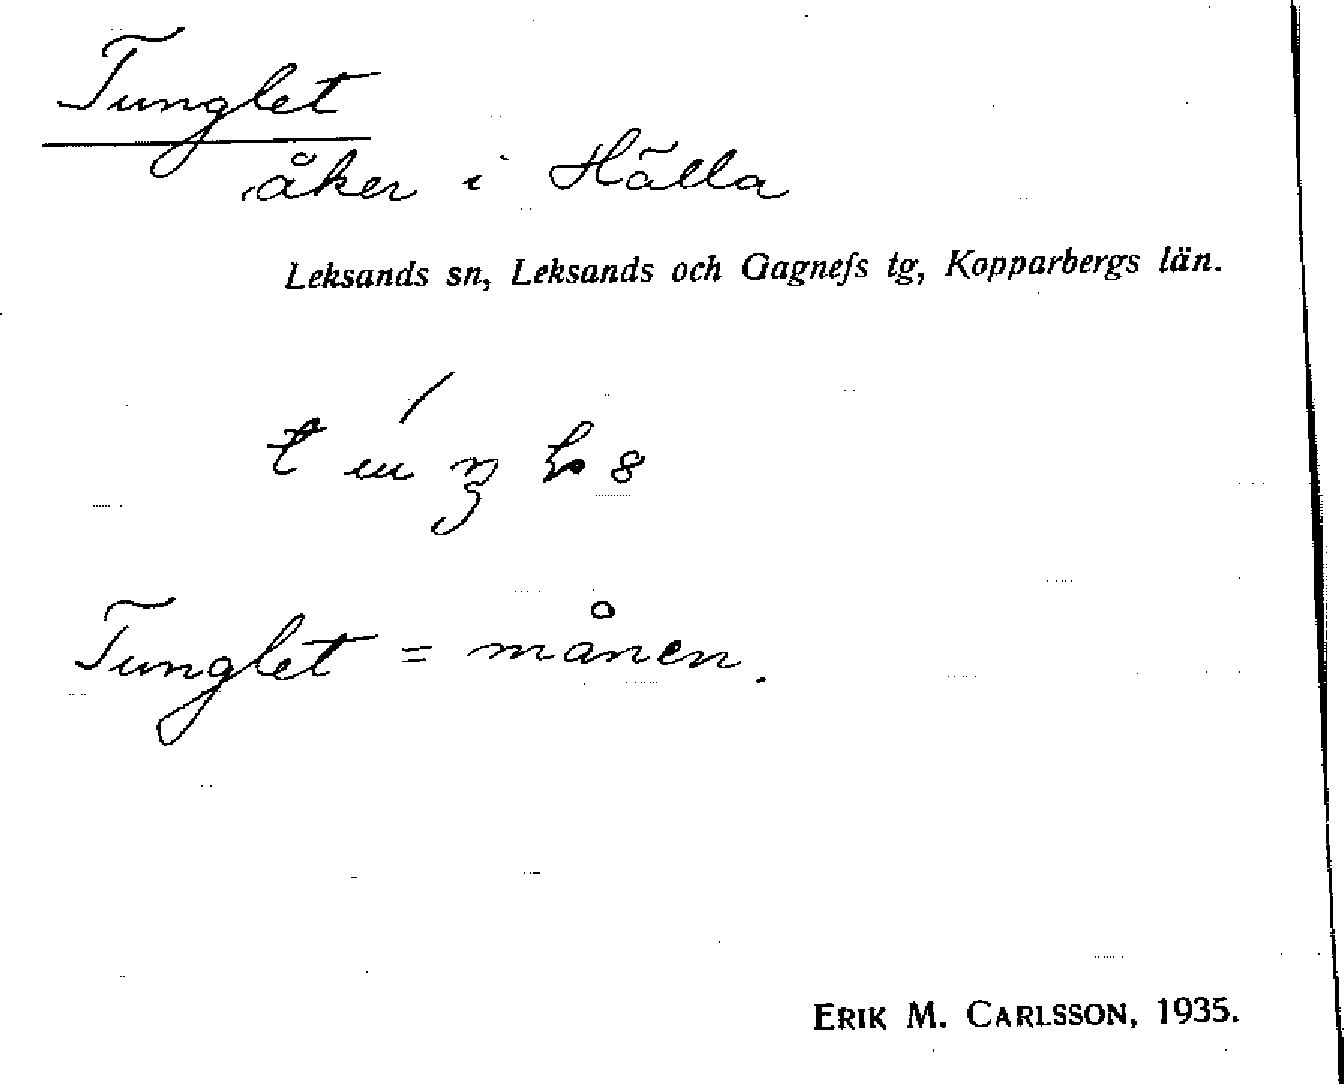 Tunglet
åker i Hälla
Leksands sn, Leksands och Gagnefs tg, Kopparbergs län.
Tunglet = månen.
ERIK M. CARLSSON, 1935.